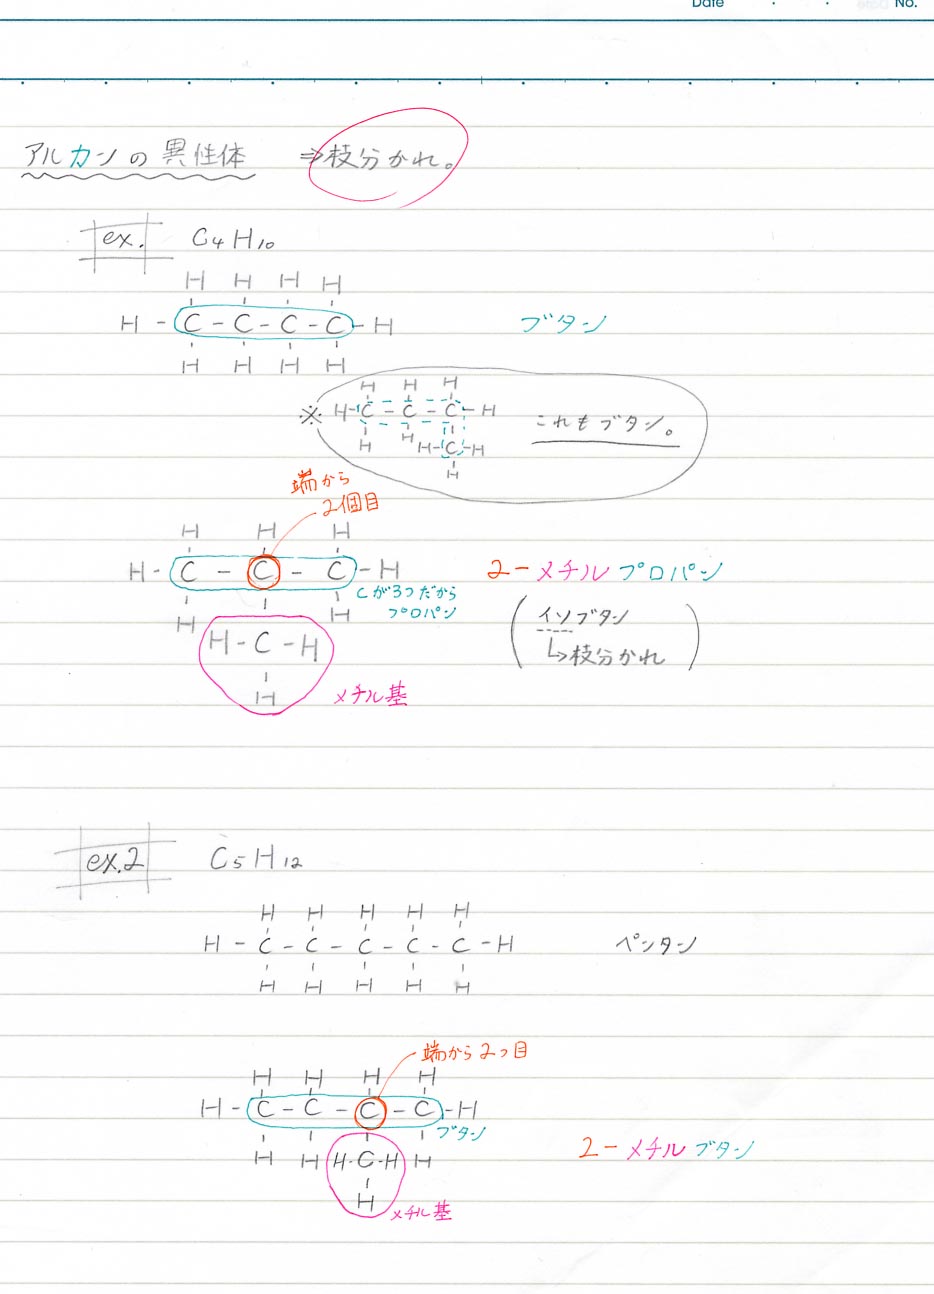 Date . . No.
アルカンの異性体 ⇒枝分かれ。
ex. C₄H₁₀
H H H H
H - C - C - C - C - H ブタン
H H H H
H H H
※ H - C - C - C - H これもブタン。
H H H - C - H
H
端から
2個目
H H H
H - C - C - C - H 2-メチルプロパン
Cが3つだから
プロパン
H H
H - C - H メチル基
H
(イソブタン
↳枝分かれ)
ex.2 C₅H₁₂
H H H H H
H - C - C - C - C - C - H ペンタン
H H H H H
端から2つ目
H H H H
H - C - C - C - C - H
ブタン
H H H - C - H H 2-メチルブタン
H
メチル基